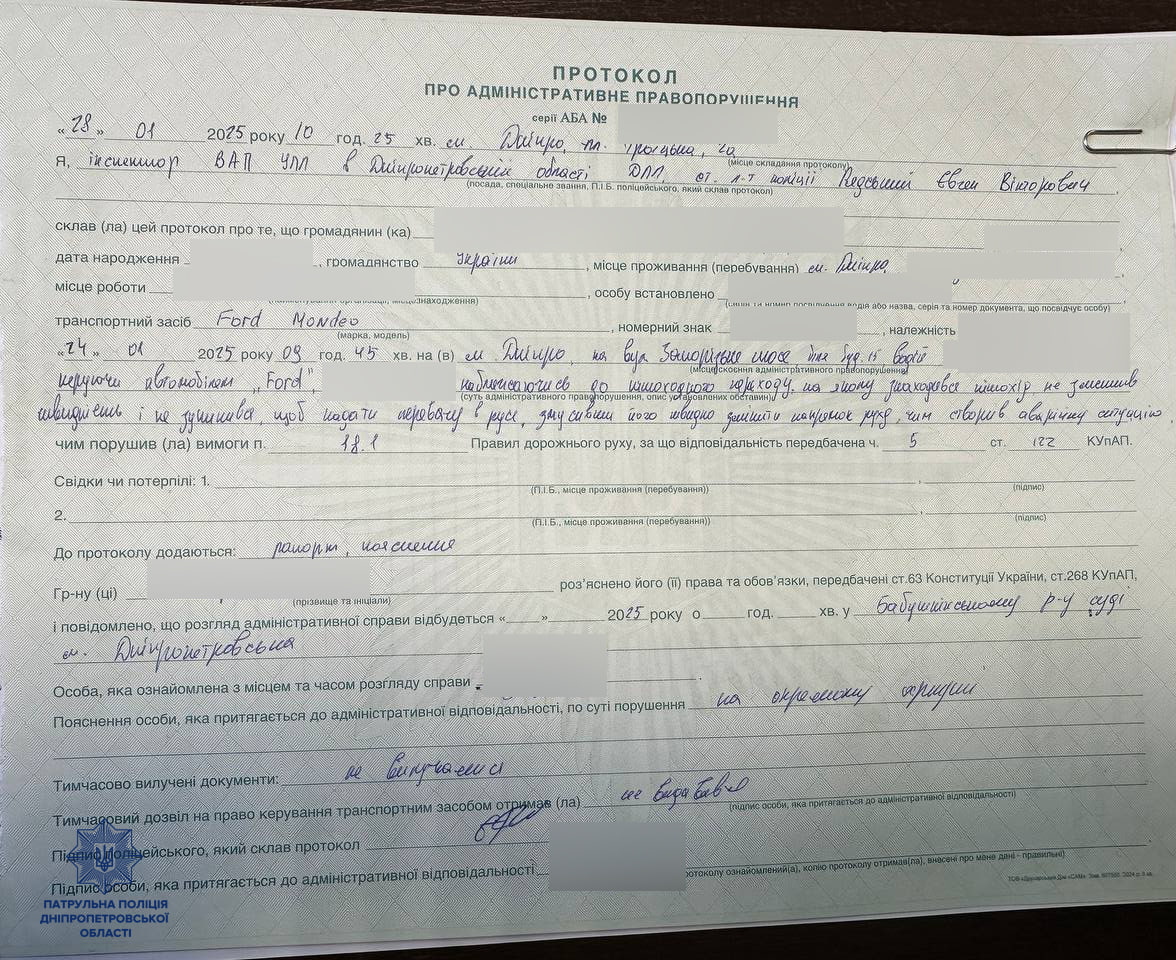 ПРОТОКОЛ
ПРО АДМІНІСТРАТИВНЕ ПРАВОПОРУШЕННЯ
серії АБА №
«28» 01 2025 року 10 год. 25 хв. м Дніпро, пл. Троїцька, 2а
(місце складання протоколу)
Я, інспектор ВАП УПП в Дніпропетровській області ДПП, ст. л-т поліції Євген Вікторович
(посада, спеціальне звання, П.І.Б. поліцейського, який склав протокол)
склав (ла) цей протокол про те, що громадянин (ка)
дата народження , громадянство України , місце проживання (перебування) м. Дніпро,
місце роботи , особу встановлено
водія або назва, серія та номер документа, що посвідчує особу)
транспортний засіб Ford Mondeo , номерний знак , належність
(марка, модель)
«24» 01 2025 року 09 год. 45 хв. на (в) м. Дніпро, на вул Запорізьке шосе біля буд. 15 водій
(місце скоєння адміністративного правопорушення)
керуючи автомобілем „Ford", наближаючись до пішохідного переходу, на якому знаходився пішохід, не зменшив
(суть адміністративного правопорушення, опис установлених обставин)
швидкість і не зупинився, щоб надати перевагу в русі, змусивши його швидко змінити напрямок руху, чим створив аварійну ситуацію
чим порушив (ла) вимоги п. 18.1 Правил дорожнього руху, за що відповідальність передбачена ч. 5 ст. 122 КУпАП.
Свідки чи потерпілі: 1.
(П.І.Б., місце проживання (перебування)) (підпис)
2.
(П.І.Б., місце проживання (перебування)) (підпис)
До протоколу додаються: рапорт, пояснення
Гр-ну (ці) роз'яснено його (її) права та обов'язки, передбачені ст.63 Конституції України, ст.268 КУпАП,
(прізвище та ініціали)
і повідомлено, що розгляд адміністративної справи відбудеться «___» 2025 року о год. хв. у Бабушкінському р-у суді
м. Дніпропетровська
Особа, яка ознайомлена з місцем та часом розгляду справи
Пояснення особи, яка притягається до адміністративної відповідальності, по суті порушення на окремому аркуші
Тимчасово вилучені документи: не вилучались
Тимчасовий дозвіл на право керування транспортним засобом отримав (ла) не видавався
(підпис особи, яка притягається до адміністративної відповідальності)
Підпис поліцейського, який склав протокол
Підпис особи, яка притягається до адміністративної відповідальності
протоколу ознайомлений(а), копію протоколу отримав(ла), внесені про мене дані - правильні)
ПАТРУЛЬНА ПОЛІЦІЯ
ДНІПРОПЕТРОВСЬКОЇ
ОБЛАСТІ